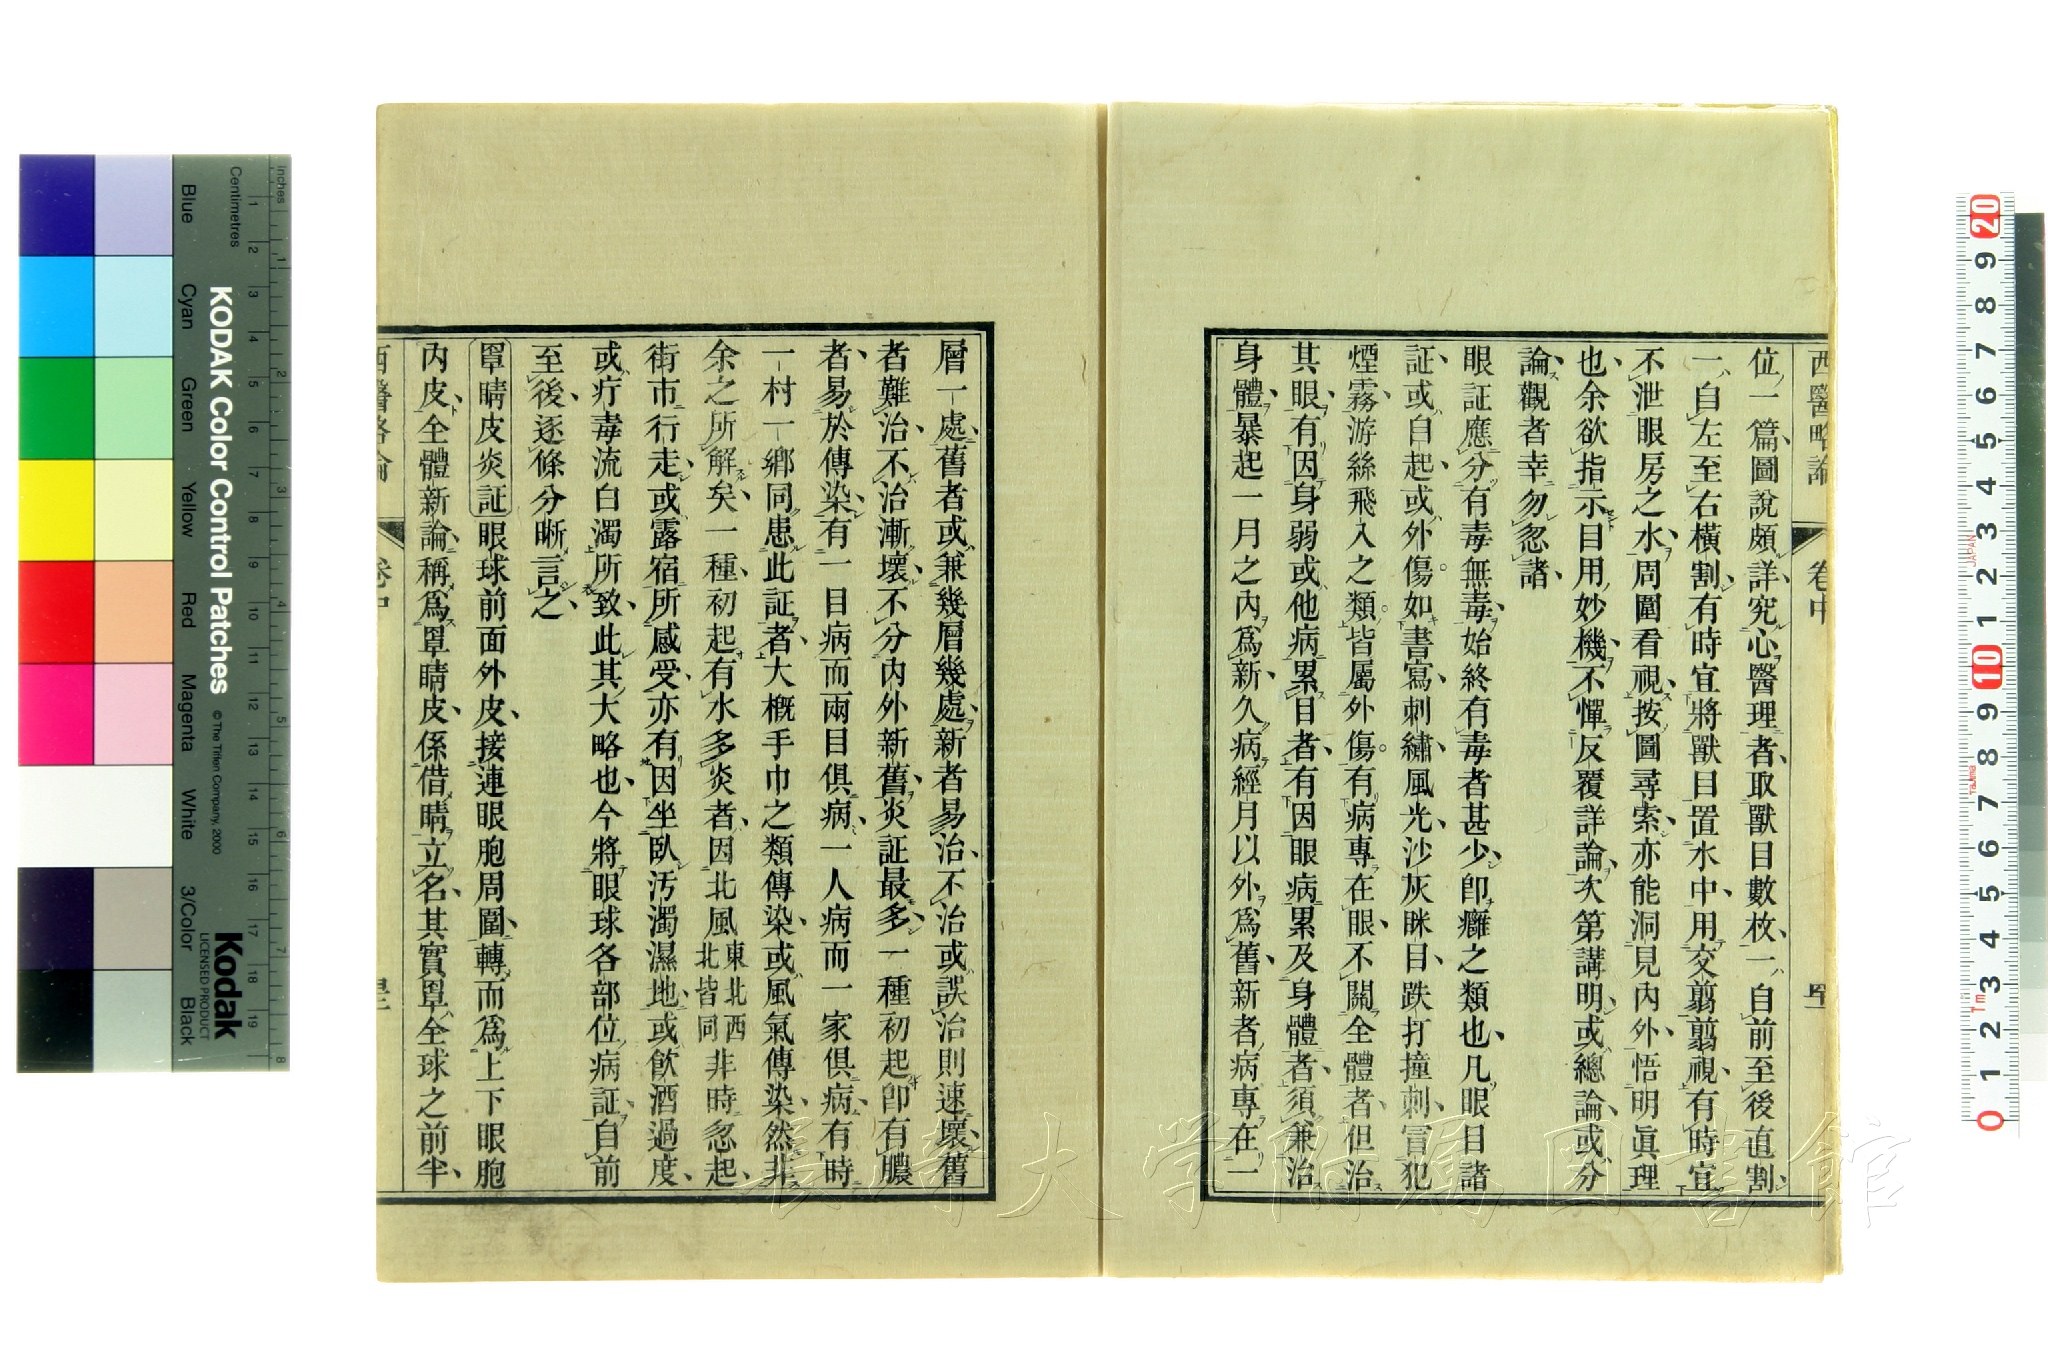 西醫略論 卷中
位一篇圖說頗詳究心醫理者取獸目數枚一自前至後直割
一自左至右橫割有時宜將獸目置水中用交翦翦視有時宜
不泄眼房之水周圍看視按圖尋索亦能洞見內外悟明眞理
也余欲指示目用妙機不憚反覆詳論次第講明或總論或分
論觀者幸勿忽諸
眼証應分有毒無毒始終有毒者甚少卽癰之類也凡眼目諸
証或自起或外傷如書寫刺繡風光沙灰眯目跌打撞刺冒犯
煙霧游絲飛入之類皆屬外傷有病專在眼不關全體者但治
其眼有因身弱或他病累目者有因眼病累及身體者須兼治
身體暴起一月之內爲新久病經月以外爲舊新者病專在一
層一處舊者或兼幾層幾處新者易治不治或誤治則速壞舊
者難治不治漸壞不分內外新舊炎証最多一種初起卽有膿
者易於傳染有一目病而兩目俱病一人病而一家俱病有時
一村一鄕同患此証者大槪手巾之類傳染或風氣傳染然非
余之所解矣一種初起有水多炎者因北風東北西北皆同非時忽起
街市行走或露宿所感受亦有因坐臥污濁濕地或飮酒過度
或疔毒流白濁所致此其大略也今將眼球各部位病証自前
至後逐條分晰言之
罩睛皮炎証眼球前面外皮接連眼胞周圍轉而爲上下眼胞
內皮全體新論稱爲罩睛皮係借睛立名其實罩全球之前半
西醫略論 卷中
Inches
Centimetres
KODAK Color Control Patches
© The Tiffen Company, 2000
Kodak
LICENSED PRODUCT
Blue Cyan Green Yellow Red Magenta White 3/Color Black
1 2 3 4 5 6 7 8 9 10 11 12 13 14 15 16 17 18 19
1 2 3 4 5 6 7 8
20 9 8 7 6 5 4 3 2 1 10 9 8 7 6 5 4 3 2 1 0
長崎大学附属図書館